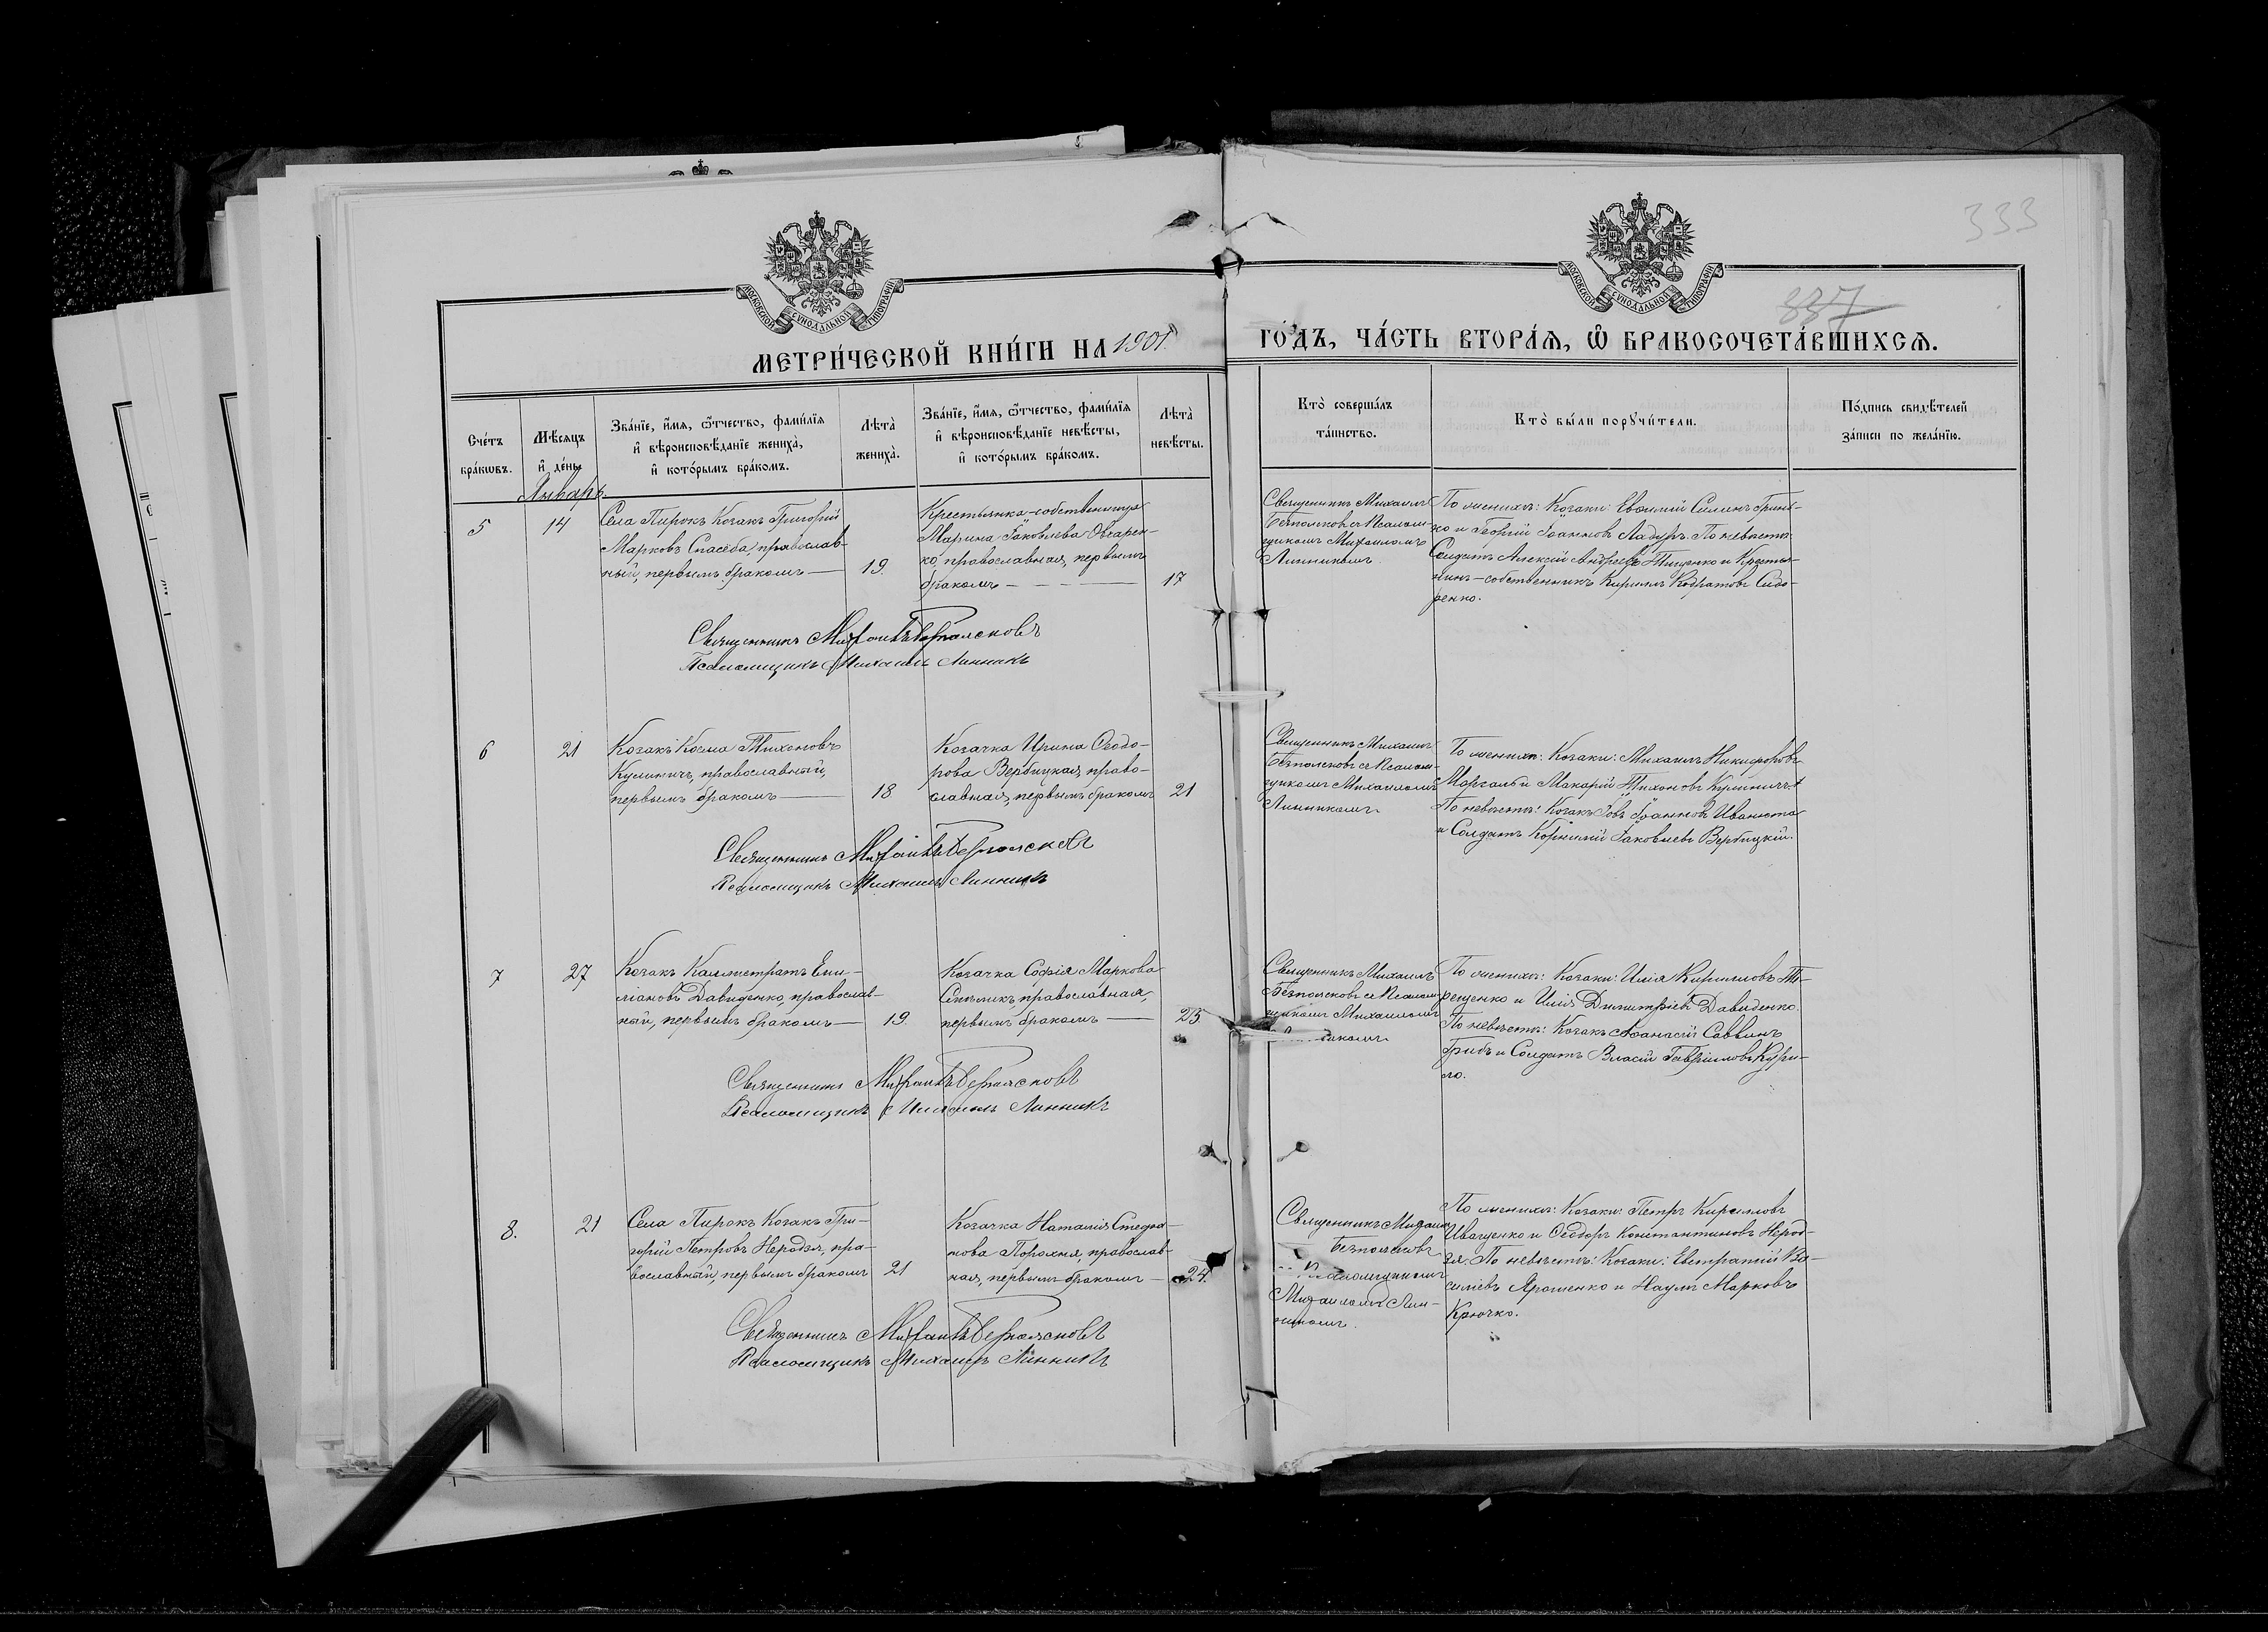 333
337
МОСКОВСКОЙ СѴНОДАЛЬНОЙ ТИПОГРАФІИ
МОСКОВСКОЙ СѴНОДАЛЬНОЙ ТИПОГРАФІИ
МЕТРИ́ЧЕСКОЙ КНИ́ГИ НА 1901й
ГО́ДЪ, ЧА́СТЬ ВТОРА́Ѧ, Ѽ БРАКОСОЧЕТА́ВШИХСѦ.
Сче́тъ
бра́кѡвъ.
Мѣ́сѧцъ
и҆ де́нь.
Зва́нїе, и҆́мѧ, ѻ҆́тчество, фами́лїѧ
и҆ вѣроисповѣ́данїе жениха̀,
и҆ кото́рымъ бра́комъ.
Лѣта̀
жениха̀.
Зва́нїе, и҆́мѧ, ѻ҆́тчество, фами́лїѧ
и҆ вѣроисповѣ́данїе невѣ́сты,
и҆ кото́рымъ бра́комъ.
Лѣта̀
невѣ́сты.
Кто̀ соверша́лъ
та́инство.
Кто̀ бы́ли порꙋчи́тели.
По́дпись свидѣ́телей
за́писи по жела́нїю.
Январь.
5
14
Села Пирокъ Козакъ Григорій
Марковъ Спасёба, православ-
ный, первымъ бракомъ —
19.
Крестьянка-собственница
Марина Іаковлева Овчарен-
ко, православная, первымъ
бракомъ —
17
Священникъ Михаилъ
Безпоясковъ съ Псалом-
щикомъ Михаиломъ
Линникомъ.
По женихѣ: Козаки: Евѳимій Силинъ Гринь-
ко и Георгій Іоанновъ Ладуръ. По невѣстѣ:
Солдатъ Алексій Андреевъ Тищенко и Крестья-
нинъ-собственникъ Кириллъ Кодратовъ Сидо-
ренко.
Священникъ Михаилъ Безпоясковъ
Псаломщикъ Михаилъ Линникъ
6
21
Козакъ Косма Тихоновъ
Кулиничъ, православный,
первымъ бракомъ —
18
Козачка Ирина Ѳеодо-
рова Вербицкая, право-
славная, первымъ бракомъ
21
Священникъ Михаилъ
Безпоясковъ съ Псалом-
щикомъ Михаиломъ
Линникомъ.
По женихѣ: Козаки: Михаилъ Никифоровъ
и Макарій Тихоновъ Кулиничъ.
По невѣстѣ: Козакъ Іовъ Іоанновъ Иванюта
и Солдатъ Корнилій Іаковлевъ Вербицкій.
Священникъ Михаилъ Безпоясковъ
Псаломщикъ Михаилъ Линникъ
7
27
Козакъ Каллистратъ Еми-
ліановъ Давиденко, православ-
ный, первымъ бракомъ —
19.
Козачка Софія Маркова
православная,
первымъ бракомъ —
23.
Священникъ Михаилъ
Безпоясковъ съ Псалом-
щикомъ Михаиломъ
По женихѣ: Козаки: Илія Кирилловъ Те-
рещенко и Илія Димитріевъ Давиденко.
По невѣстѣ: Козакъ Аѳанасій Саввинъ
Грибъ и Солдатъ Власій Гавріиловъ Кури-
ло.
Священникъ Михаилъ Безпоясковъ
Псаломщикъ Михаилъ Линникъ
8.
21
Села Пирокъ Козакъ Гри-
горій Петровъ Неродзя, пра-
вославный, первымъ бракомъ
21
Козачка Наталія Стефа-
нова Порохня, православ-
ная, первымъ бракомъ —
24.
Священникъ Михаилъ
Безпоясковъ
Псаломщикомъ
Михаиломъ Лин-
никомъ.
По женихѣ: Козаки: Петръ Кирилловъ
Иващенко и Ѳеодоръ Константиновъ Нерод-
зя. По невѣстѣ: Козаки: Евстратій Ва-
силіевъ Ярошенко и Наумъ Марковъ
Крючко.
Священникъ Михаилъ Безпоясковъ
Псаломщикъ Михаилъ Линникъ